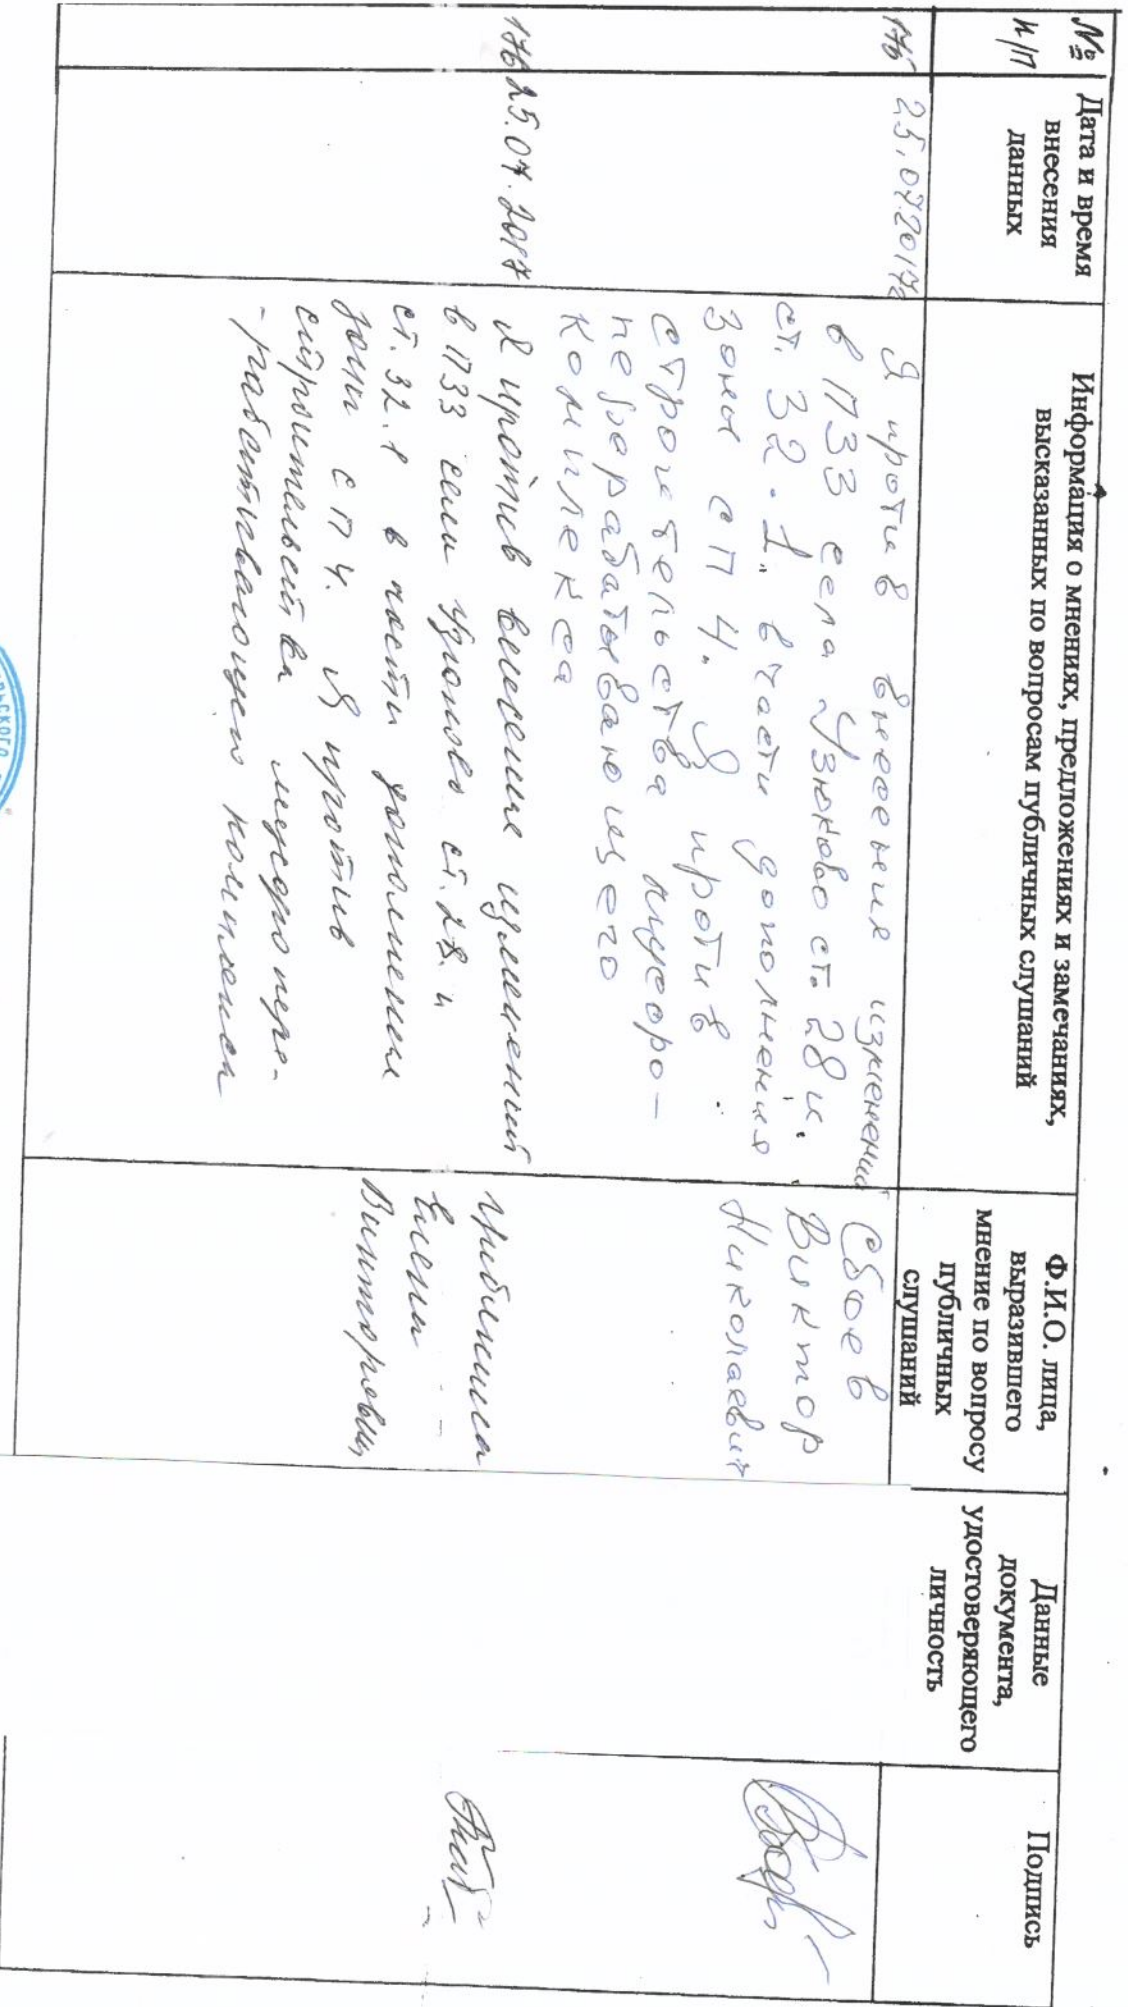 № п/п
Дата и время
внесения
данных
Информация о мнениях, предложениях и замечаниях,
высказанных по вопросам публичных слушаний
Ф.И.О. лица,
выразившего
мнение по вопросу
публичных
слушаний
Данные
документа,
удостоверяющего
личность
Подпись
175
25.07.2017г
Я против внесения изменений
в ПЗЗ села Узюково ст. 28 и
ст. 32.1 в части дополнения
зоны сп 4. Я против
строительства мусоро-
перерабатывающего
комплекса
Сбоев
Виктор
Николаевич
176
25.07.2017
Я против внесение изменений
в ПЗЗ села Узюково ст. 28. и
ст. 32.1 в части дополнения
зоны сп 4. Я против
строительства мусоропере-
-рабатывающего комплекса
Елена
Викторовна